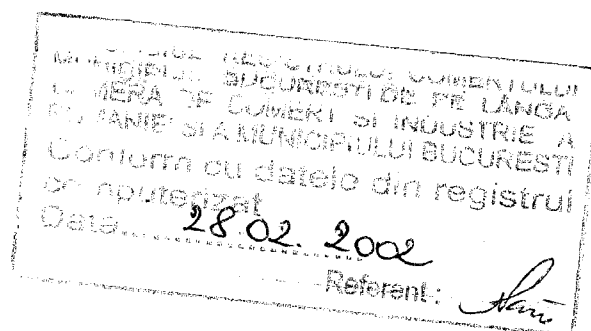 OFICIUL REGISTRULUI COMERTULUI
MUNICIPIUL BUCURESTI DE PE LANGA
CAMERA DE COMERT SI INDUSTRIE A
ROMANIEI SI A MUNICIPIULUI BUCURESTI
Conform cu datele din registrul
computerizat
Data... 28.02. 2002
Referent: